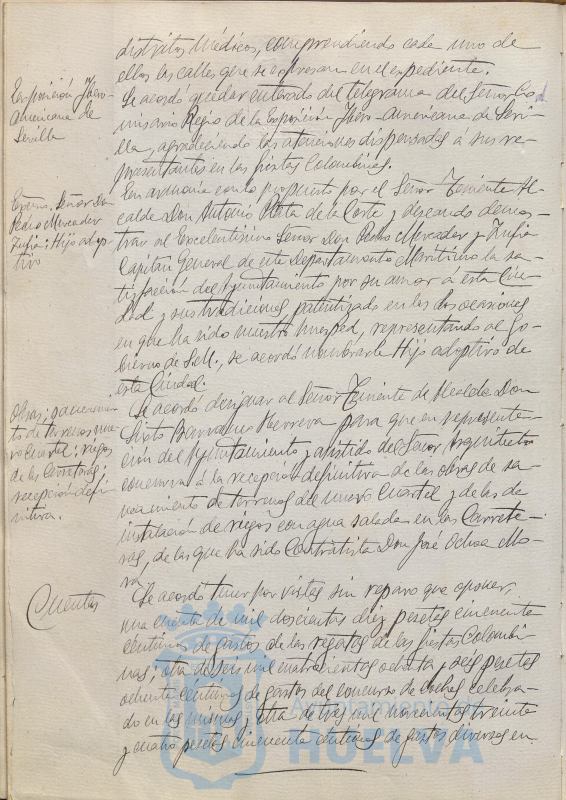 distritos médicos, comprendiendo cada uno de
ellos las calles que se expresan en el expediente.
Exposición Ibero-
americana de
Sevilla
Se acordó quedar enterado del telegrama del Señor Co-
misario Regio de la Exposición Ibero-Americana de Sevi-
lla, agradeciendo las atenciones dispensadas á sus re-
presentantes en las fiestas Colombinas.
Excmo. Señor Don
Pedro Mercader
Zufia: Hijo adop-
tivo
En armonía con lo propuesto por el Señor Teniente Al-
calde Don Antonio de la Corte y deseando demos-
trar al Excelentísimo Señor Don Pedro Mercader y Zufia
Capitán General de este Departamento Marítimo la sa-
tisfacción del Ayuntamiento por su amor á esta Ciu-
dad y sus tradiciones, patentizado en las dos ocasiones
en que ha sido nuestro huesped, representando al Go-
bierno de S.M., se acordó nombrarle Hijo adoptivo de
esta Ciudad.
Obras; saneamien-
to de terrenos nue-
vo Cuartel; riegos
de las Carreteras;
recepción defi-
nitiva.
Se acordó designar al Señor Teniente de Alcalde Don
Sixto Barranco Herrera para que en representa-
ción del Ayuntamiento y asistido del Señor Arquitecto
concurra á la recepción definitiva de las obras de sa-
neamiento de terrenos del nuevo Cuartel y de las de
instalación de riegos con agua salada en las Carrete-
ras, de las que ha sido Contratista Don José Ochoa Mo-
ra
Cuentas
Se acordó tener por vistas sin reparo que oponer,
una cuenta de mil doscientas diez pesetas cincuenta
céntimos de gastos de las regatas de las fiestas Colombi-
nas; otra de seis mil cuatrocientas ochenta y seis pesetas
ochenta céntimos de gastos del concurso de coches celebra-
do en las mismas y otra de tres mil novecientas treinta
y cuatro pesetas cincuenta céntimos de gastos diversos en
Ayuntamiento
HUELVA